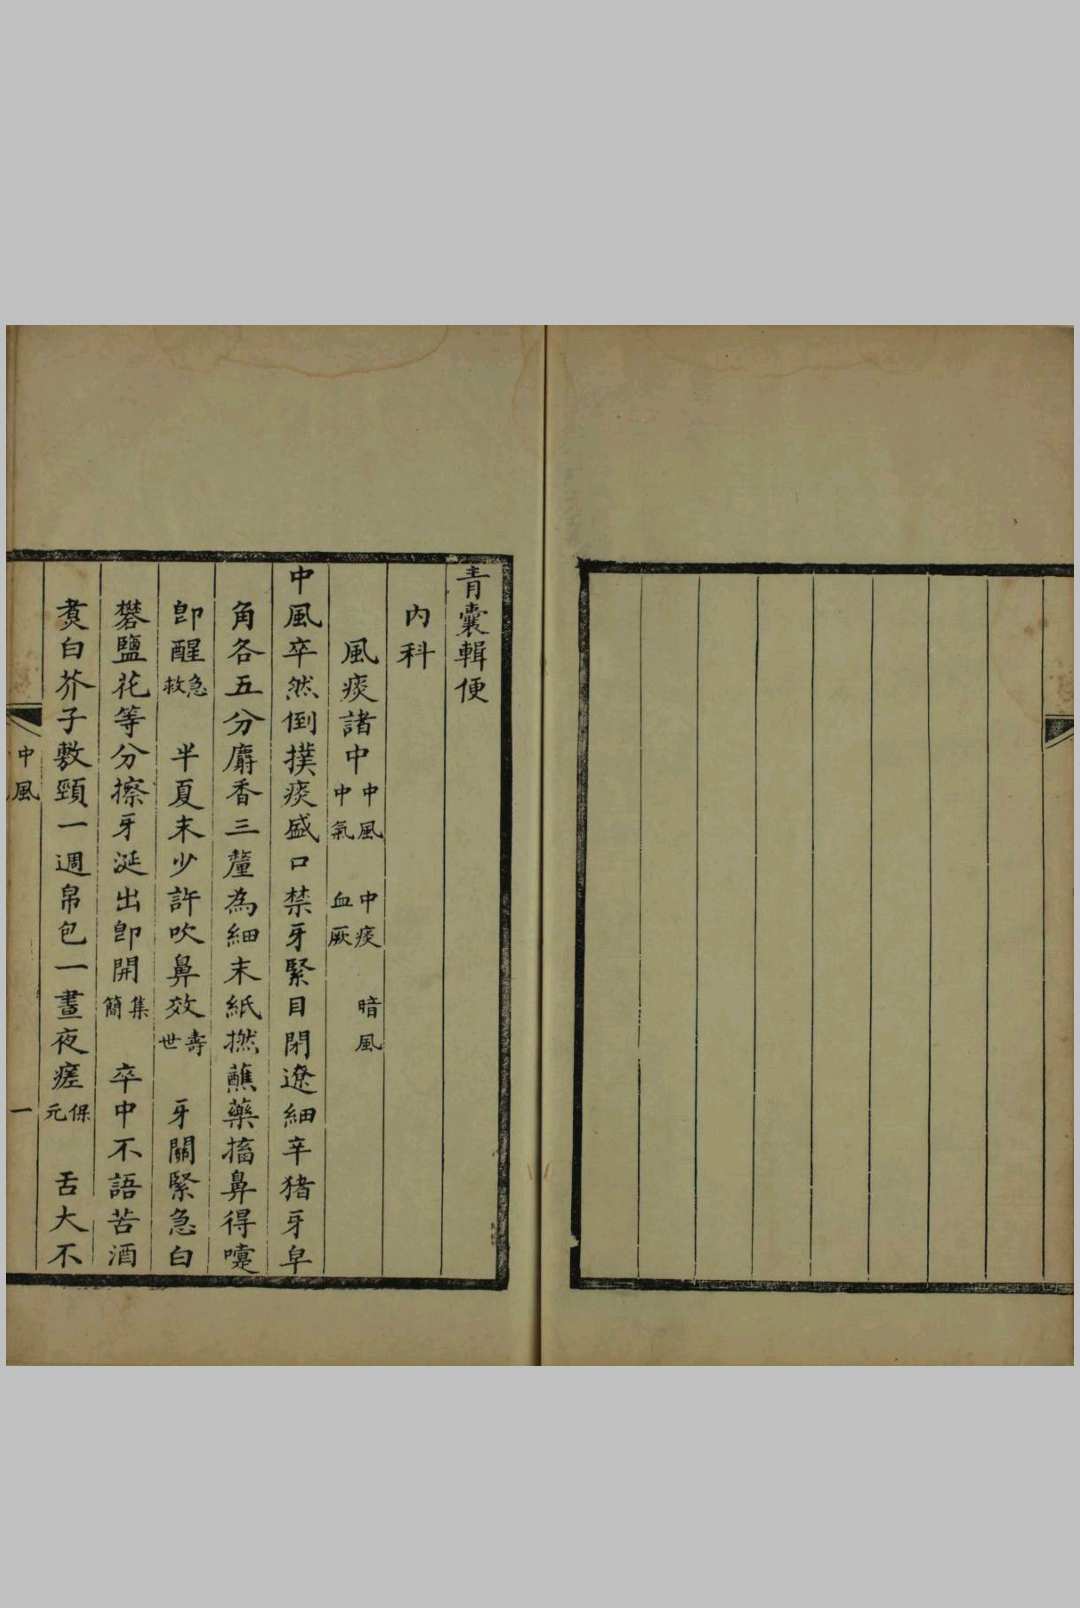 青囊輯便
內科
風痰諸中 中風 中痰 暗風 中氣 血厥
中風卒然倒撲痰盛口禁牙緊目閉遼細辛猪牙皁
角各五分麝香三釐為細末紙撚蘸藥搐鼻得嚏
即醒 急救 半夏末少許吹鼻效 壽世 牙關緊急白
礬鹽花等分擦牙涎出即開 集簡 卒中不語苦酒
煑白芥子敷頸一週帛包一晝夜瘥 保元 舌大不
中風 一